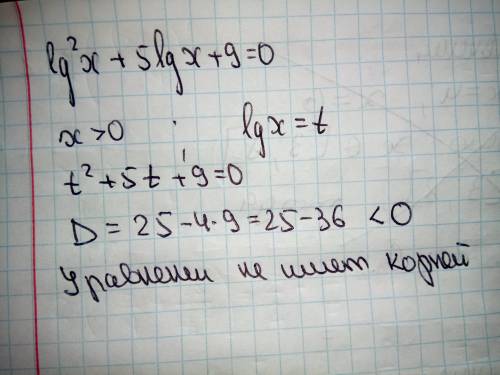 lg²x + 5lgx + 9 = 0
x > 0 lgx = t
t² + 5t + 9 = 0
D = 25 - 4·9 = 25 - 36 < 0
Уравнении не имет корней